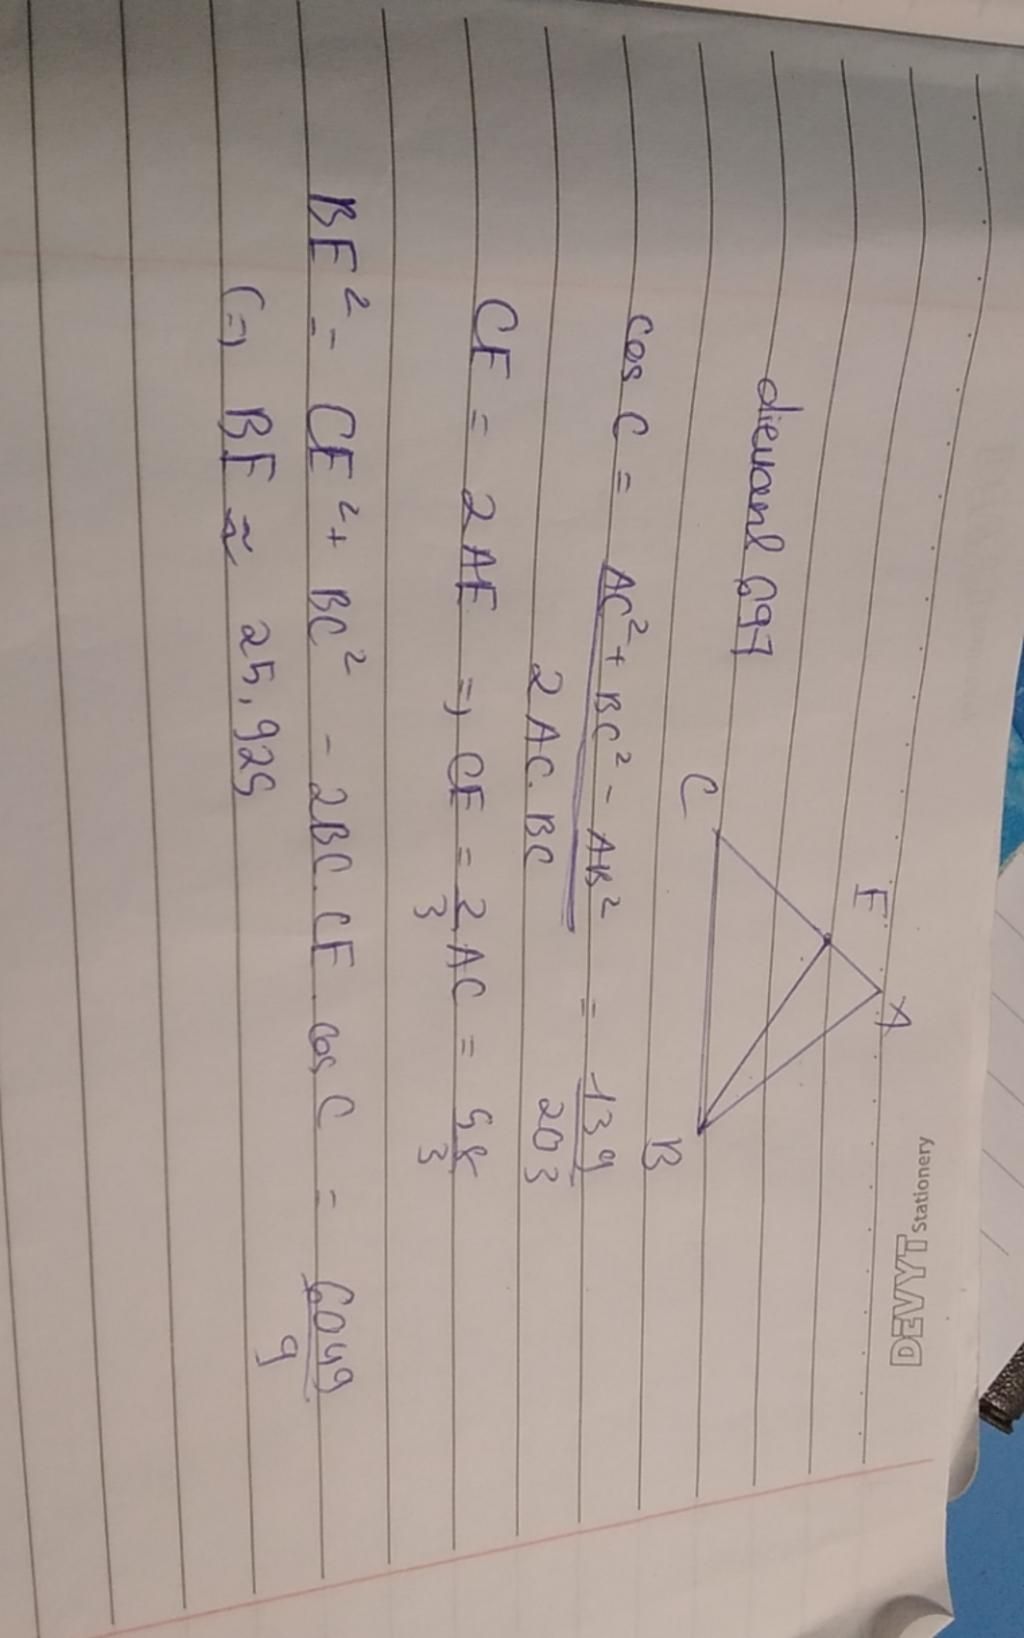 DEVYT Stationery
A
F
C
B
dieuanl 697
cos C = AC² + BC² - AB² / 2 AC. BC = 139 / 203
CF = 2 AF => CF = 2/3 AC = 58/3
BF² = CF² + BC² - 2BC. CF. cos C = 6049/9
(=) BF ≈ 25,925